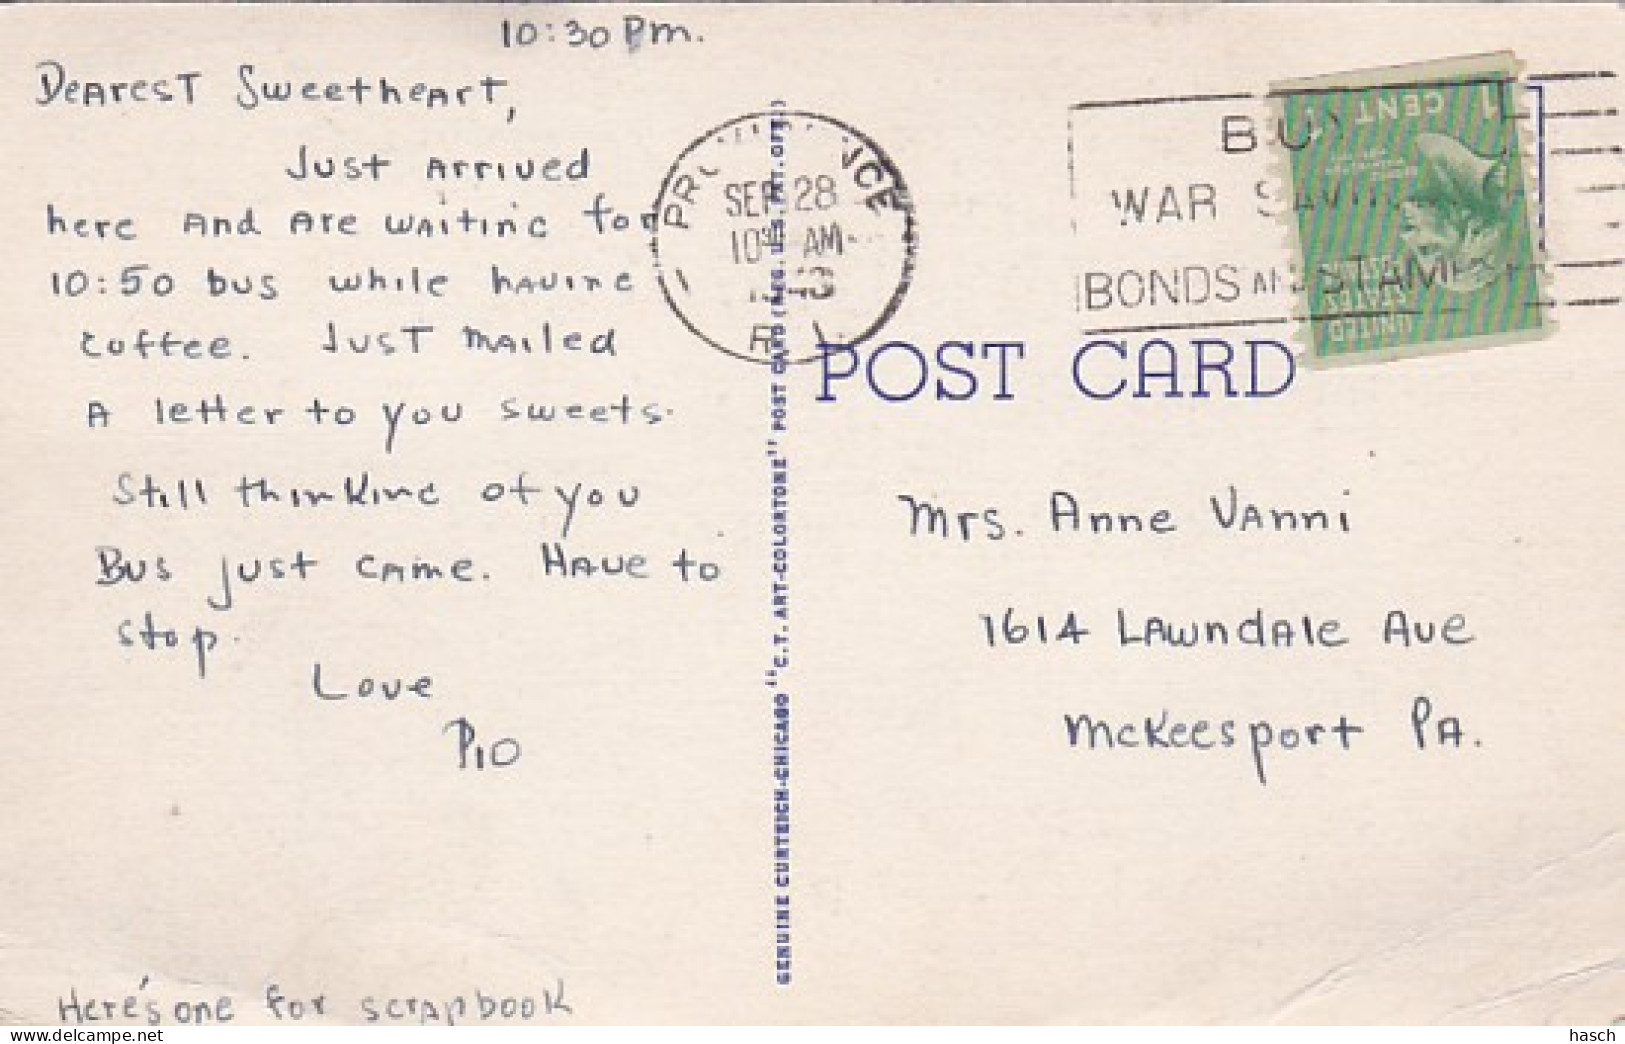 10:30 Pm.
Dearest Sweetheart,
Just Arrived
here And Are waiting for
10:50 bus while having
coffee. Just mailed
A letter to you sweets.
Still thinking of you
Bus just came. Have to
stop.
Love
Pio
Here's one for scrapbook
GENUINE CURTEICH-CHICAGO "C.T. ART-COLORTONE" POST CARD (REG. U.S. PAT. OFF.)
SEP 28
AM
R I
BUY
WAR SAVINGS
BONDS AND STAMPS
1 CENT 1
UNITED
STATES
POSTAGE
POST CARD
Mrs. Anne Vanni
1614 Lawndale Ave
McKeesport PA.
hasch